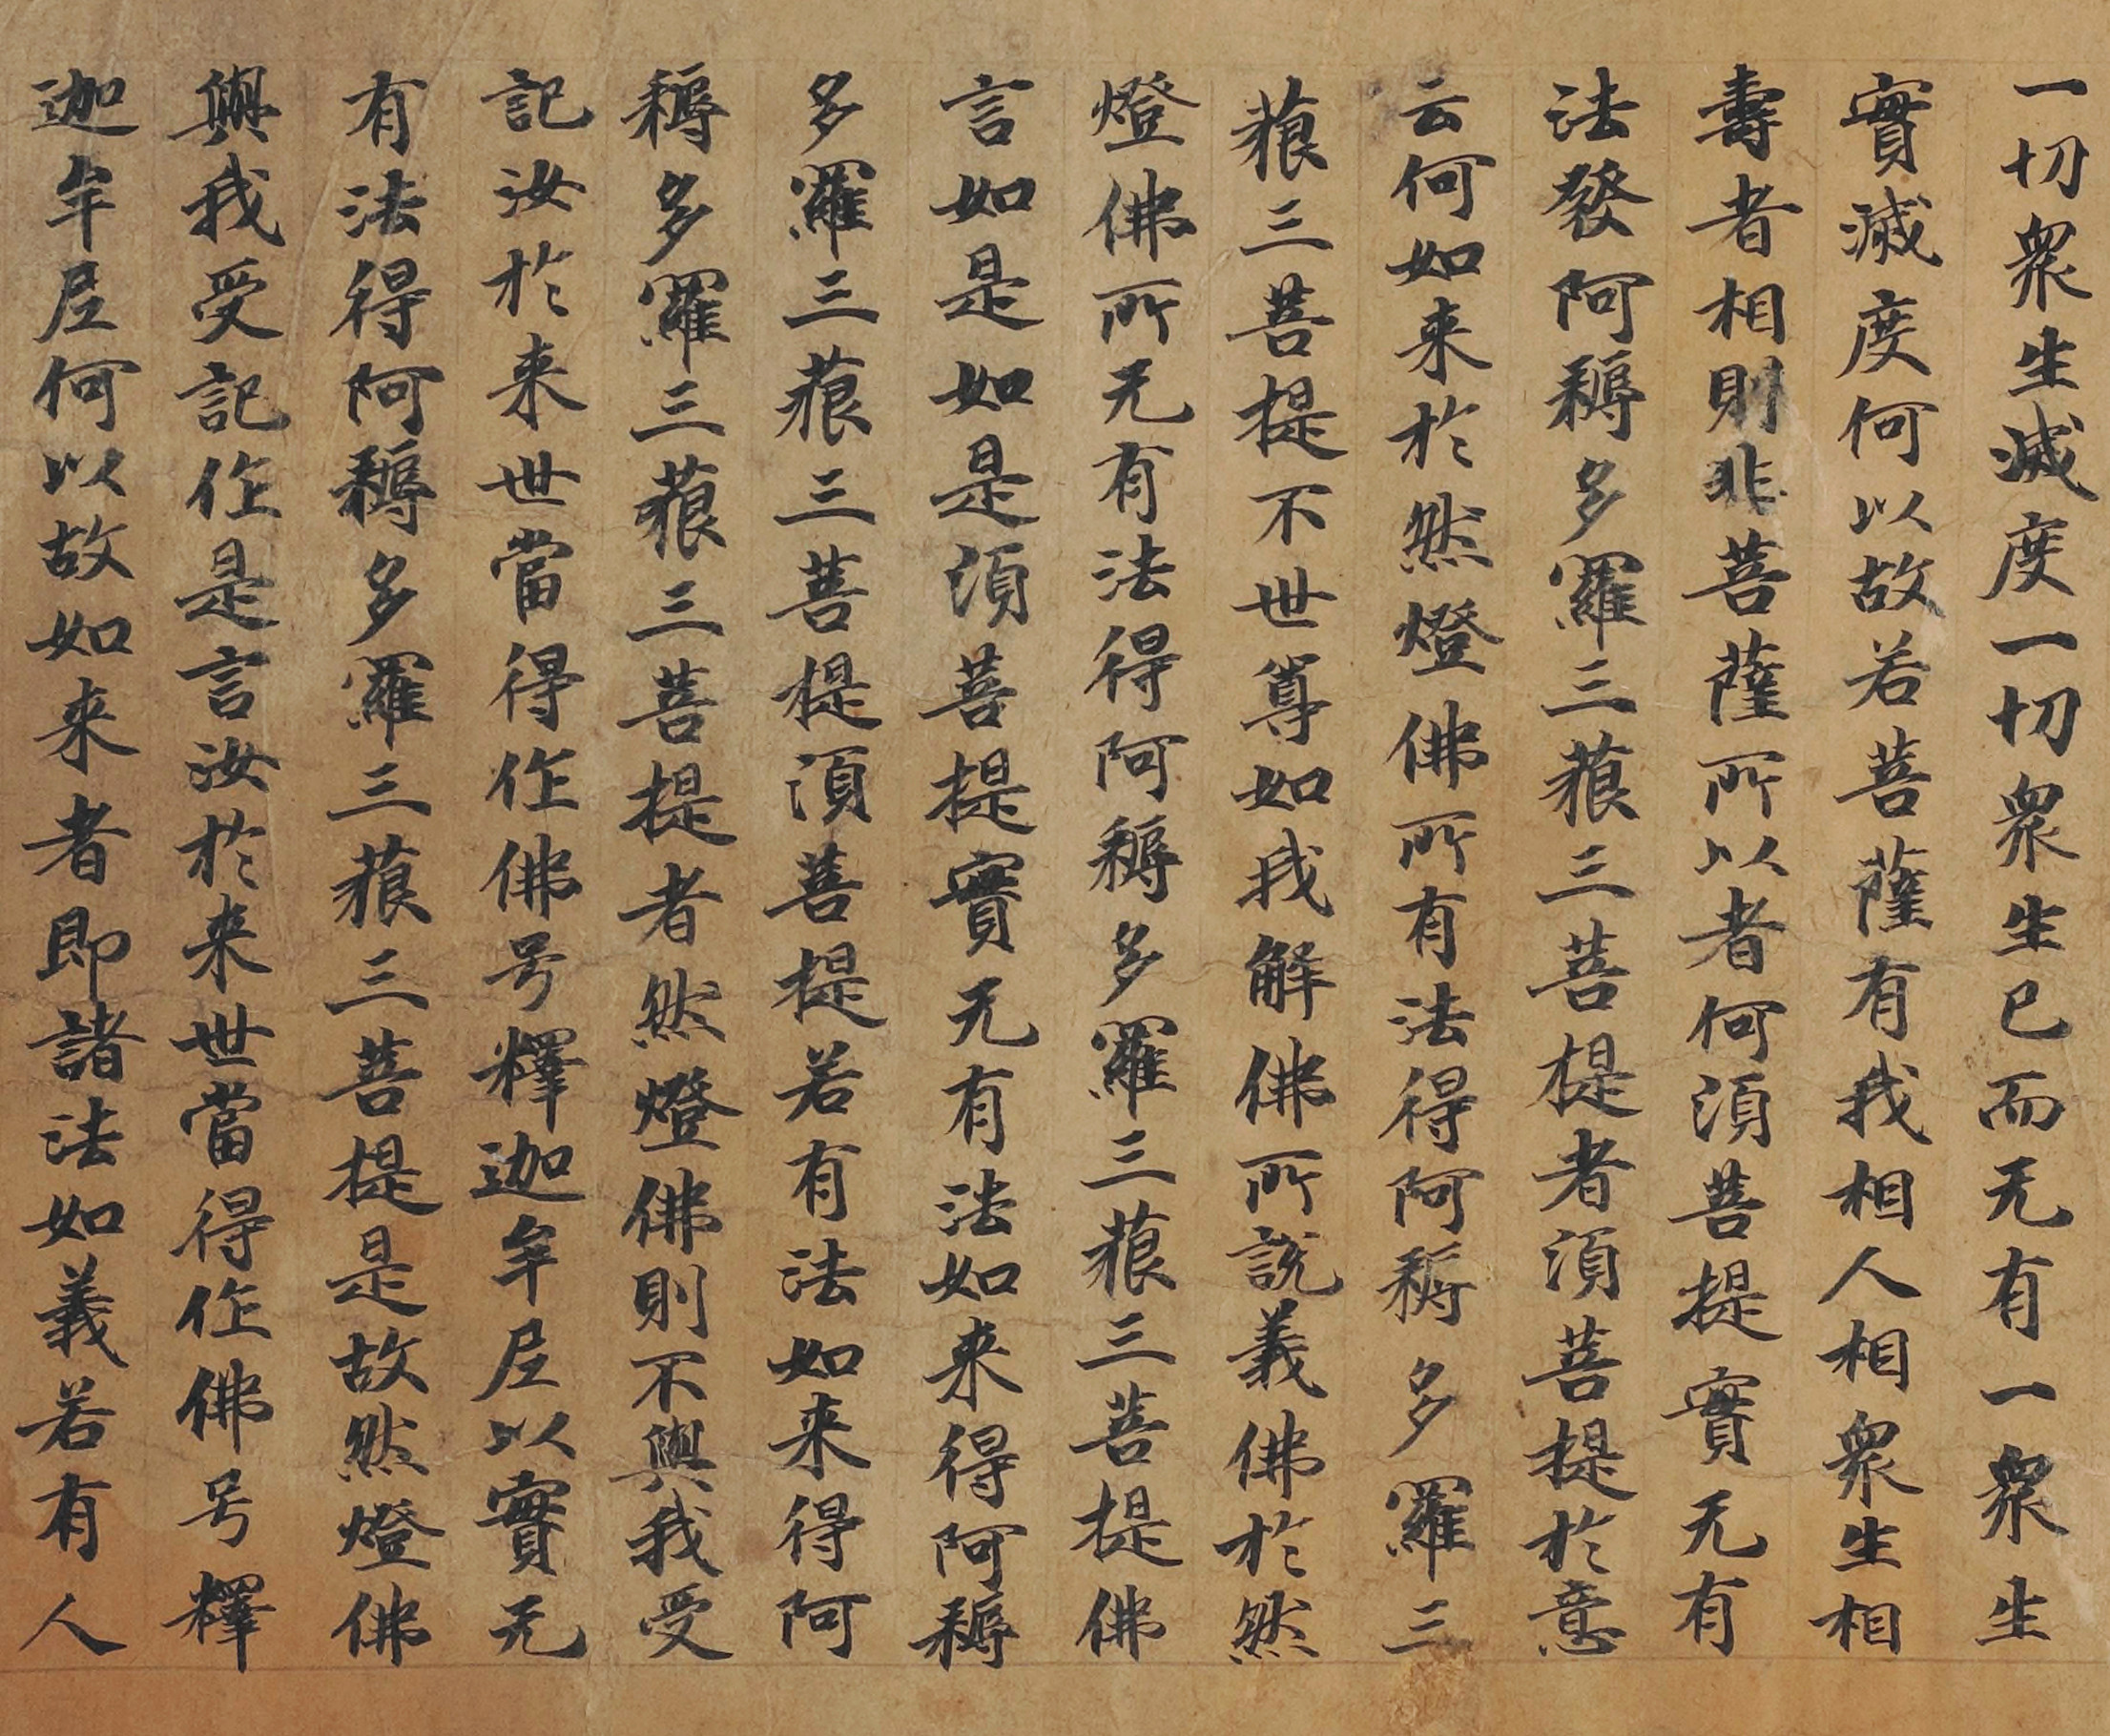 一切眾生滅度一切眾生已而无有一眾生
實滅度何以故若菩薩有我相人相眾生相
壽者相則非菩薩所以者何須菩提實无有
法發阿耨多羅三藐三菩提者須菩提於意
云何如来於然燈佛所有法得阿耨多羅三
藐三菩提不世尊如我解佛所說義佛於然
燈佛所无有法得阿耨多羅三藐三菩提佛
言如是如是須菩提實无有法如来得阿耨
多羅三藐三菩提須菩提若有法如来得阿
耨多羅三藐三菩提者然燈佛則不與我受
記汝於来世當得作佛号釋迦牟尼以實无
有法得阿耨多羅三藐三菩提是故然燈佛
與我受記作是言汝於来世當得作佛号釋
迦牟尼何以故如来者即諸法如義若有人